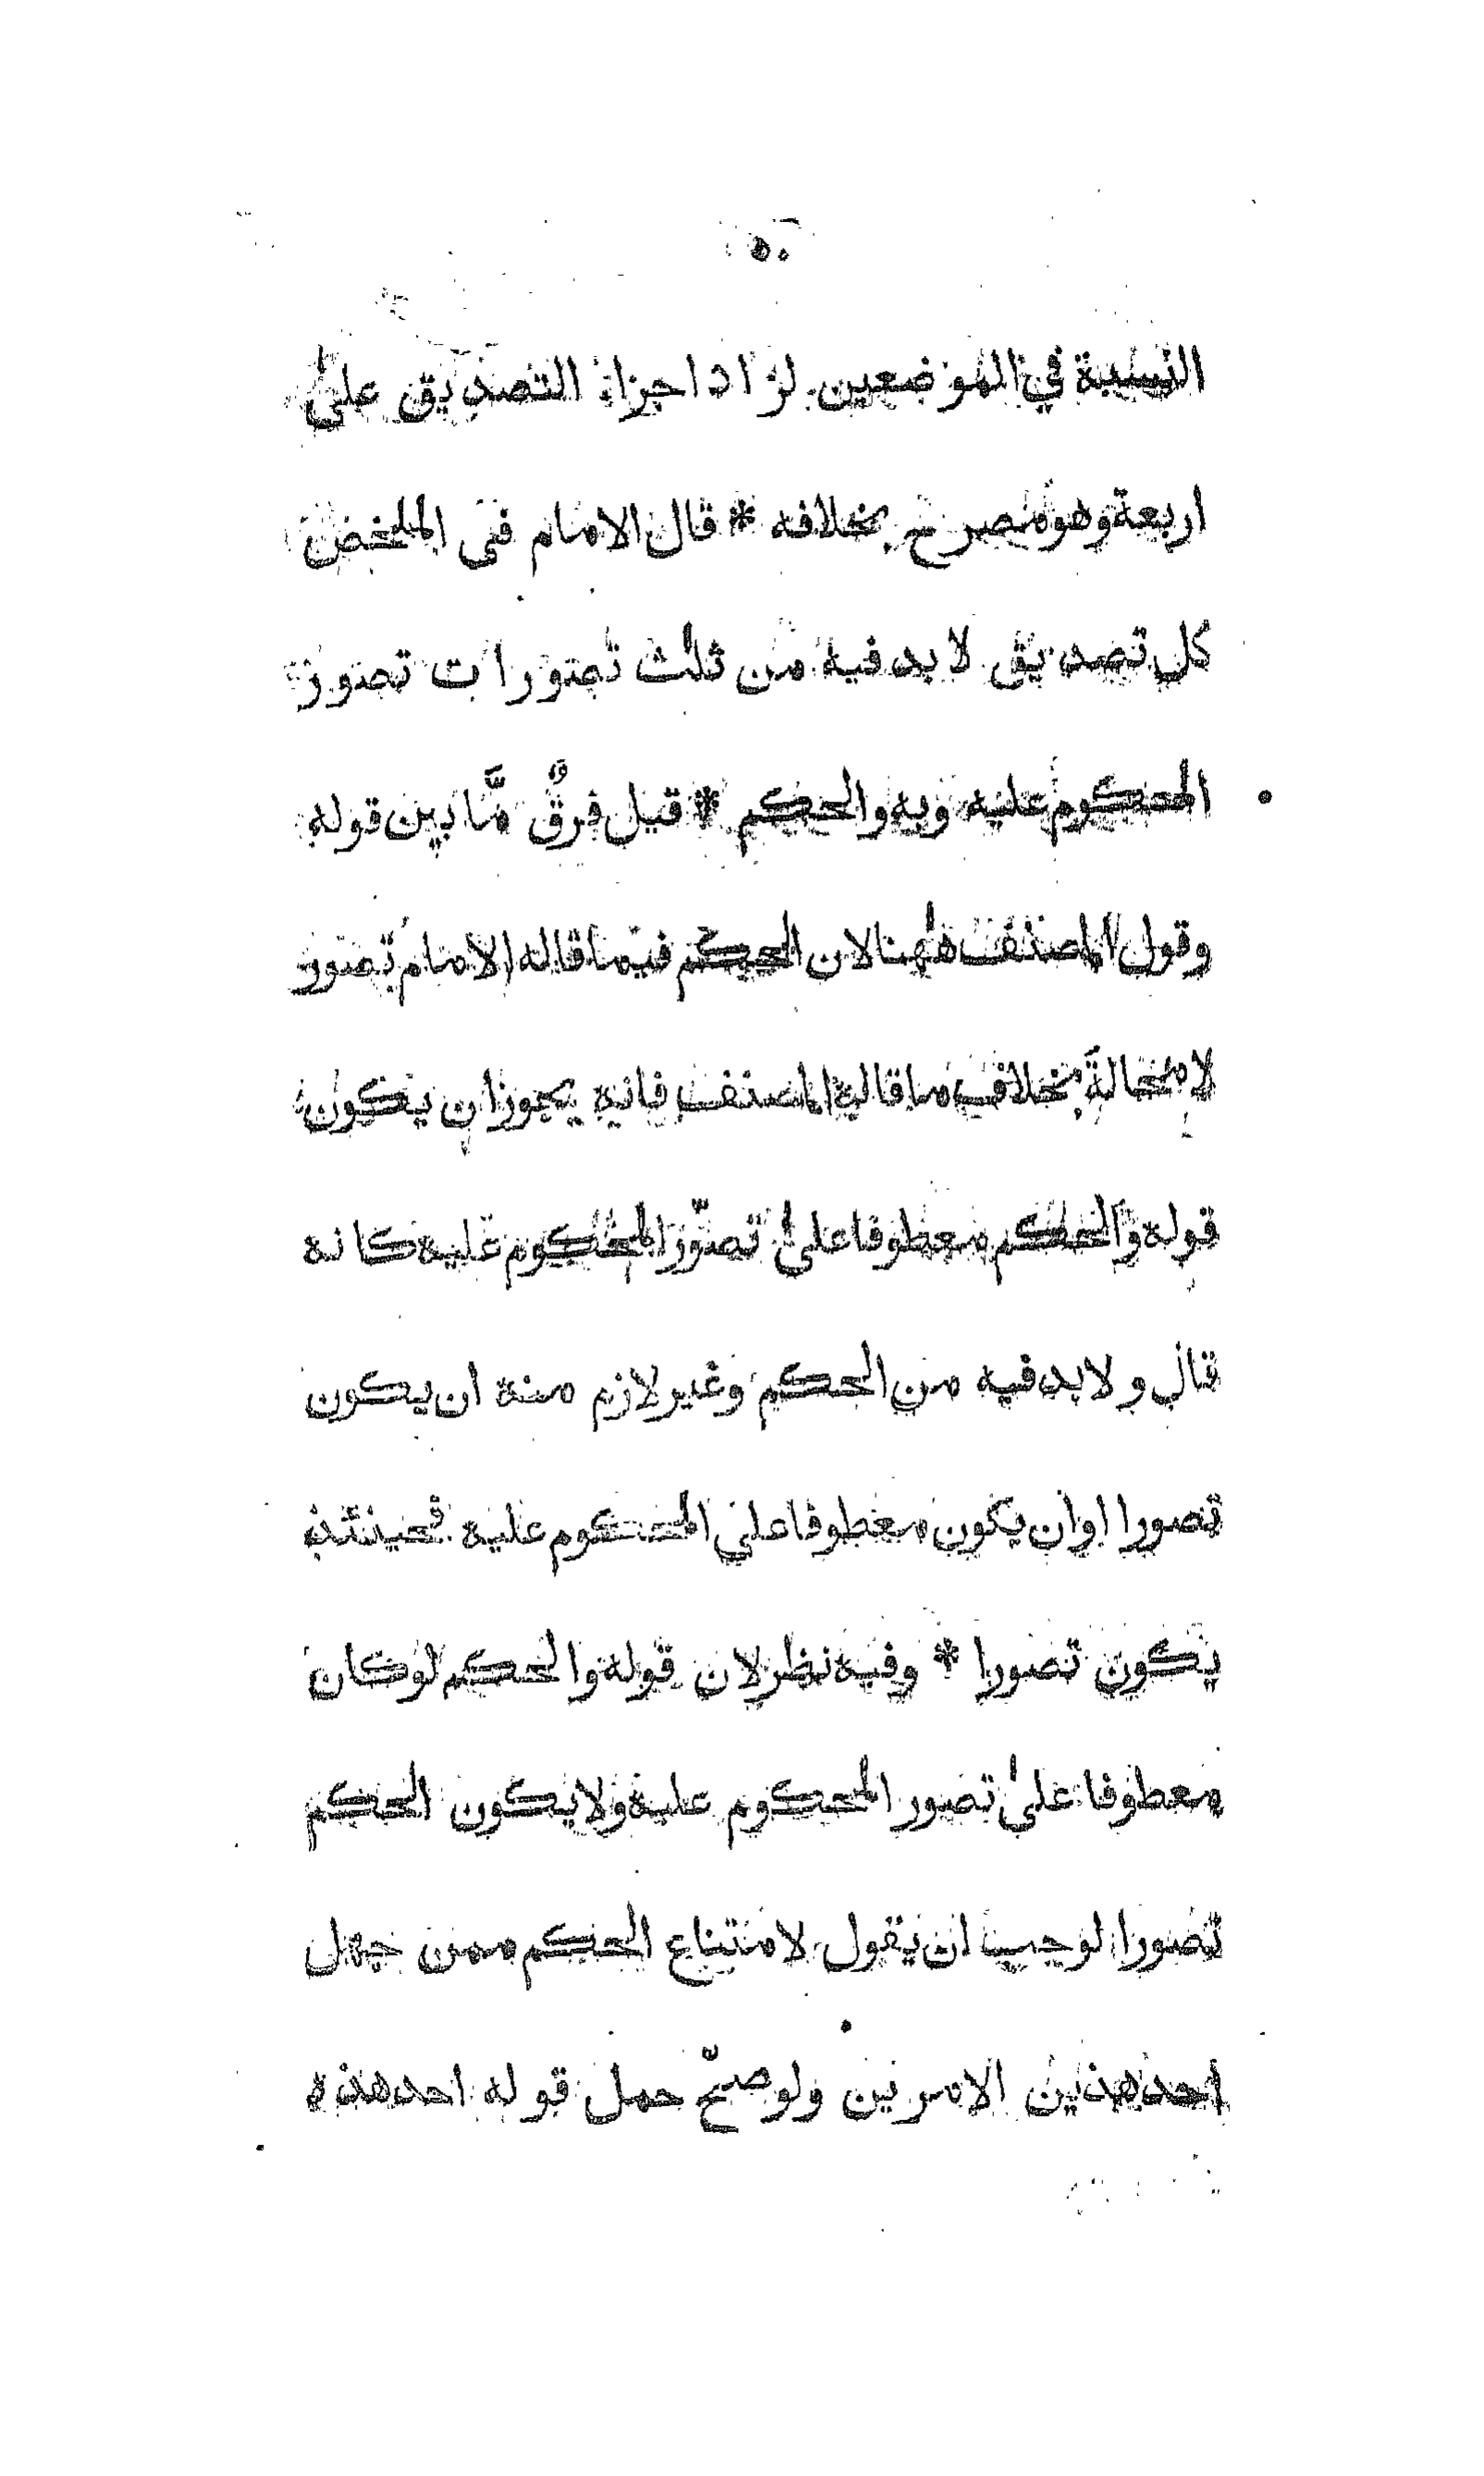 ٥٠
النسبة في الموضعين لزاد اجزاء التصديق على
اربعة وهو مصرح بخلافه * قال الامام فى الملخص
كل تصديق لا بد فيه من ثلث تصورات تصور
المحكوم عليه وبه والحكم * قيل فرقٌ مَّا بين قوله
وقول المصنف ههنا لان الحكم فيما قاله الامام تصور
لا محالةَ بخلاف ما قاله المصنف فانه يجوز ان يكون
قوله والحكم معطوفا على تصوّر المحكوم عليه كانه
قال ولا بد فيه من الحكم وغير لازم منه ان يكون
تصورا اوان يكون معطوفا على المحكوم عليه فحينئذ
يكون تصورا * وفيه نظر لان قوله والحكم لوكان
معطوفا على تصور المحكوم عليه ولا يكون الحكم
تصورا لوجب ان يقول لامتناع الحكم ممن جهل
احد هذين الامرين ولوصحّ حمل قوله احد هذه